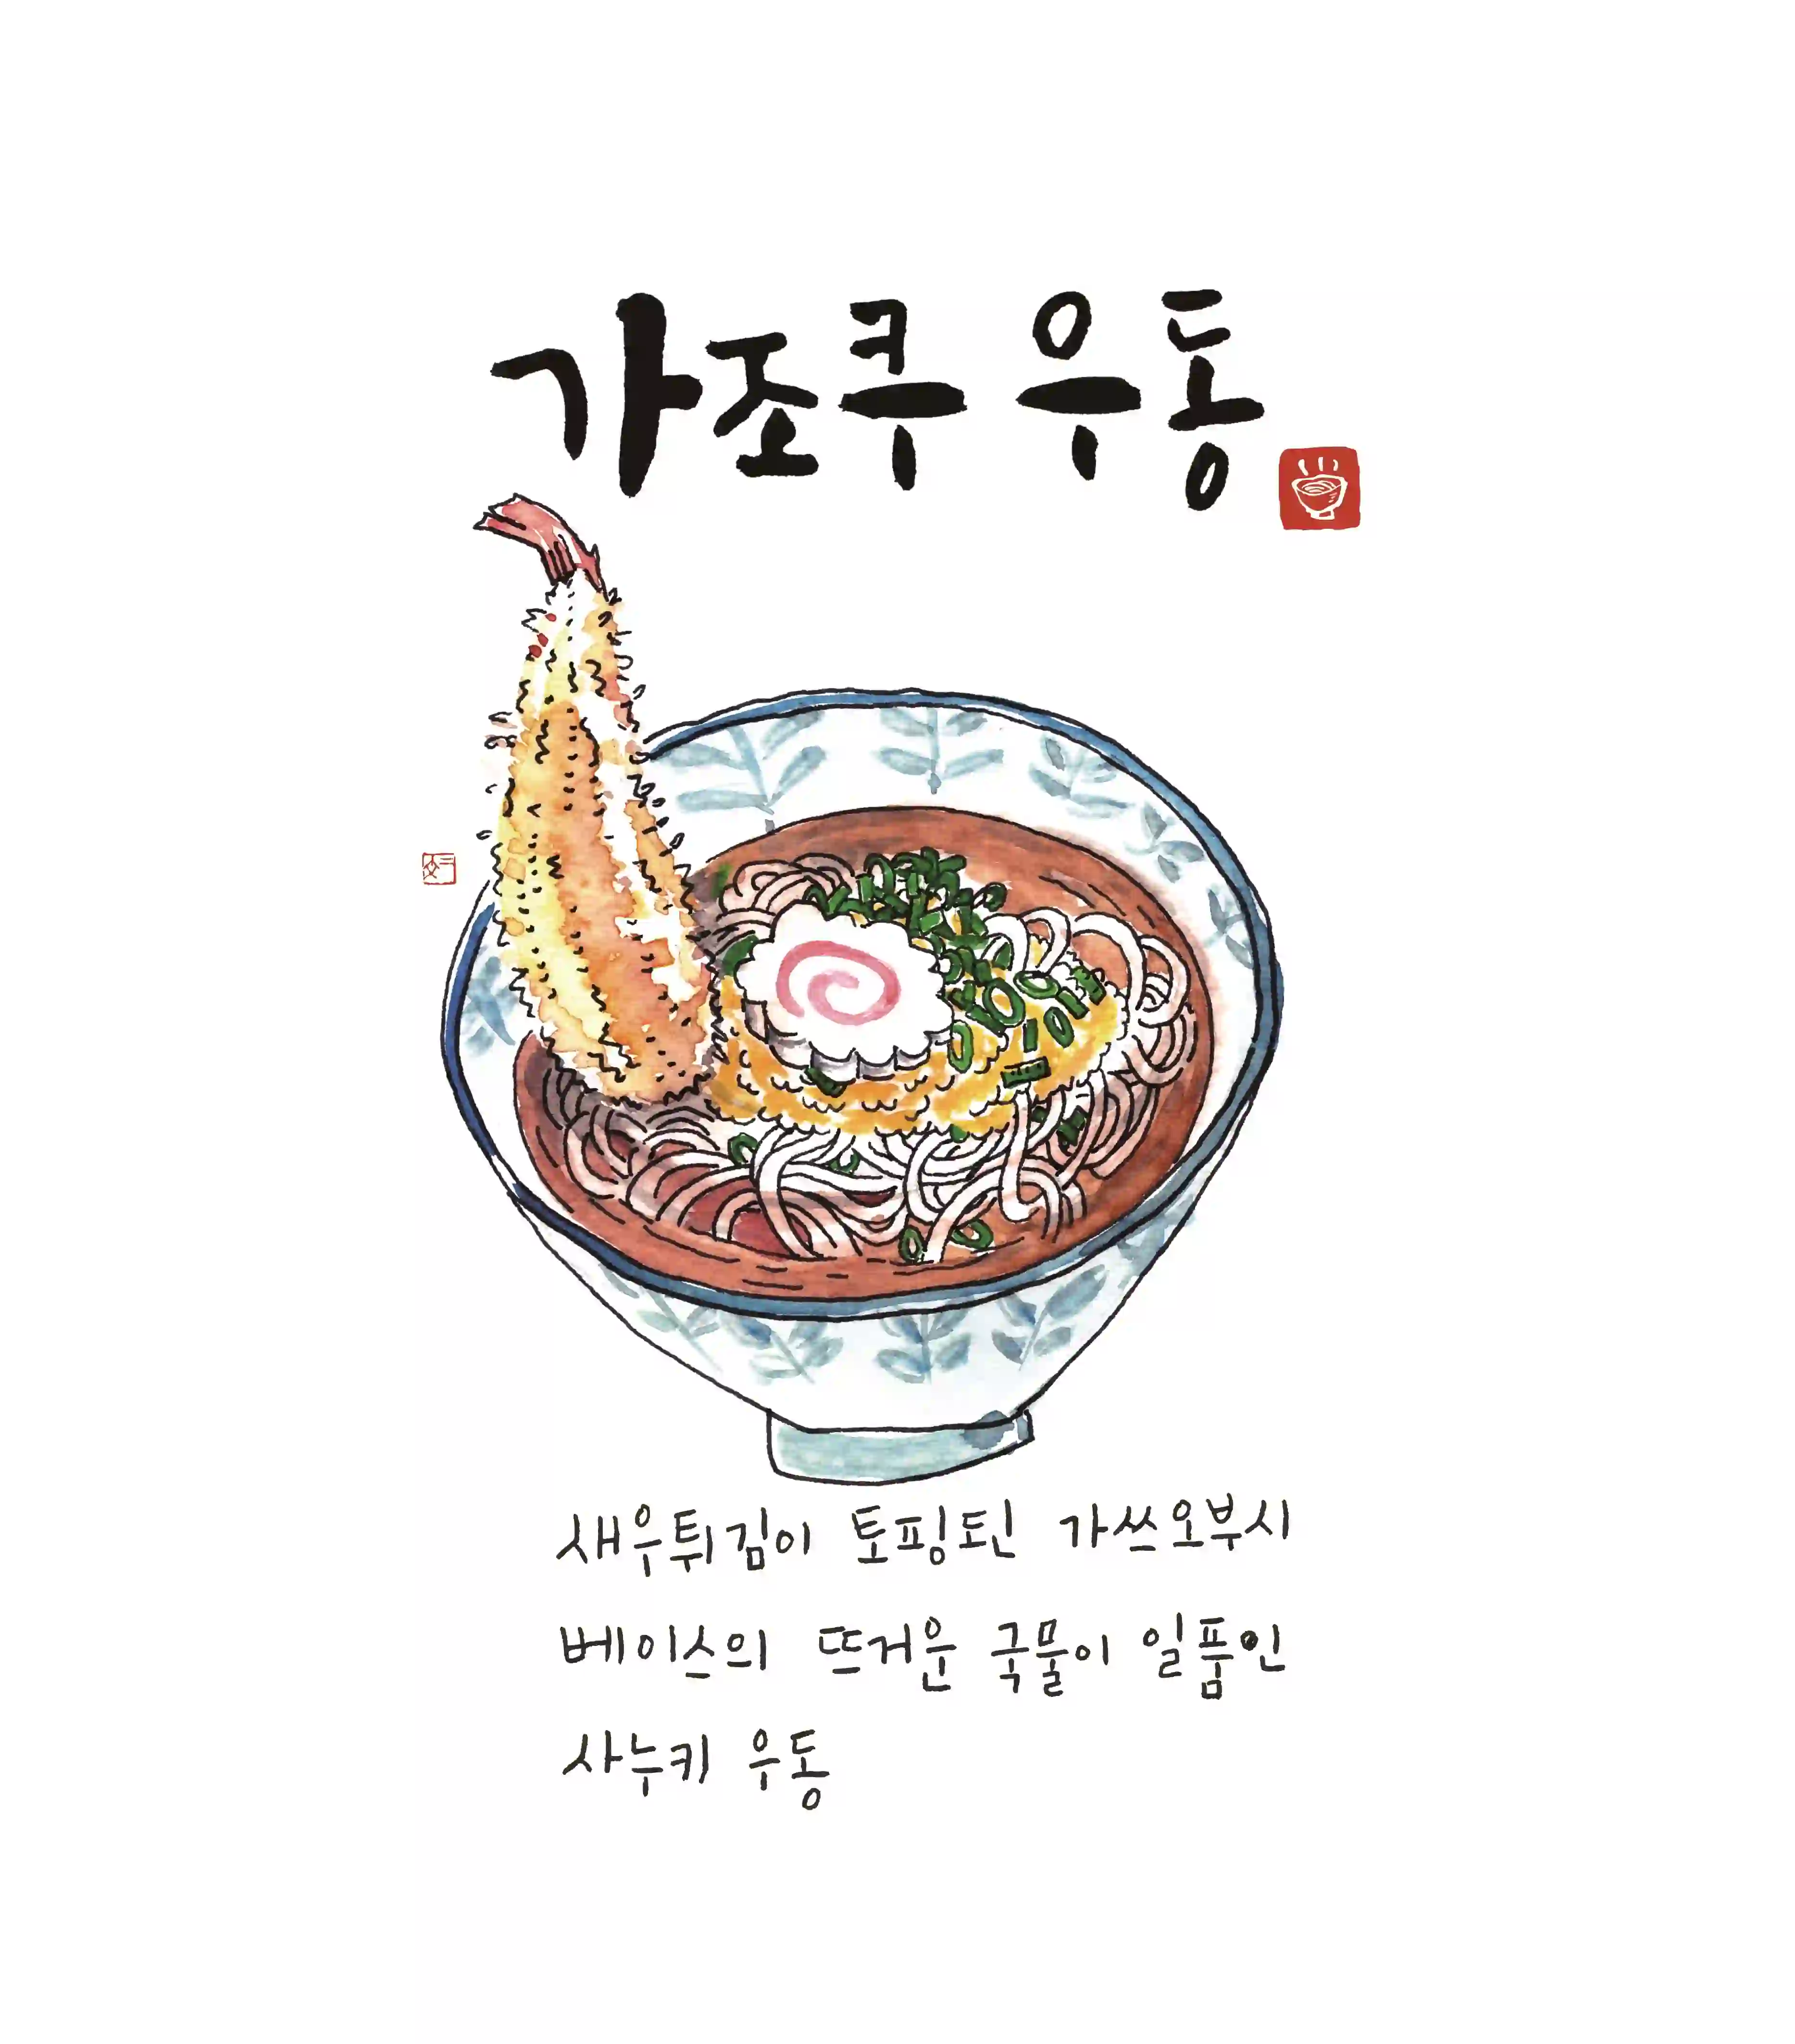 가조쿠 우동
새우튀김이 토핑된 가쓰오부시
베이스의 뜨거운 국물이 일품인
사누키 우동